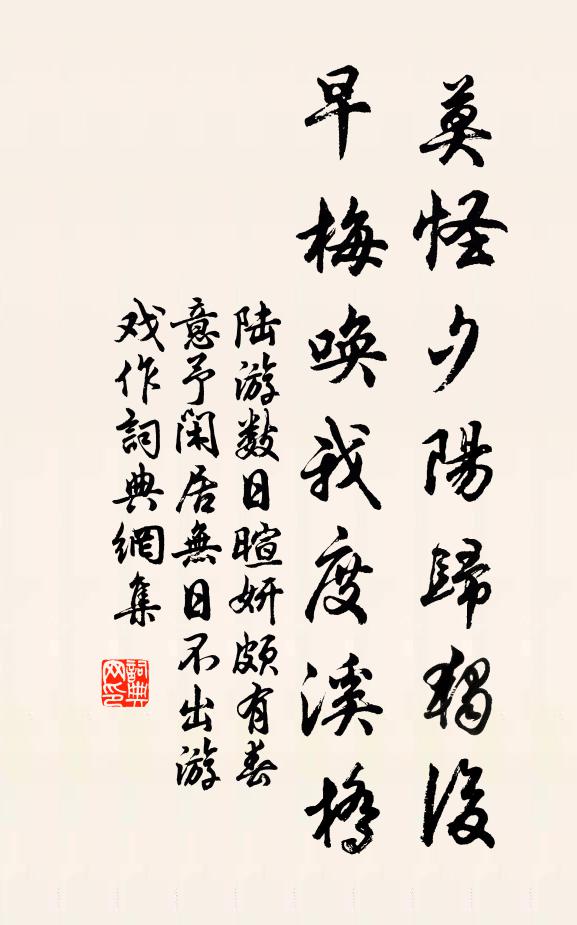 莫怪夕陽歸獨後
早梅喚我度溪橋
陆游數日暄妍頗有春
意予闲居無日不出游
戏作詞典網集
詞典
网印